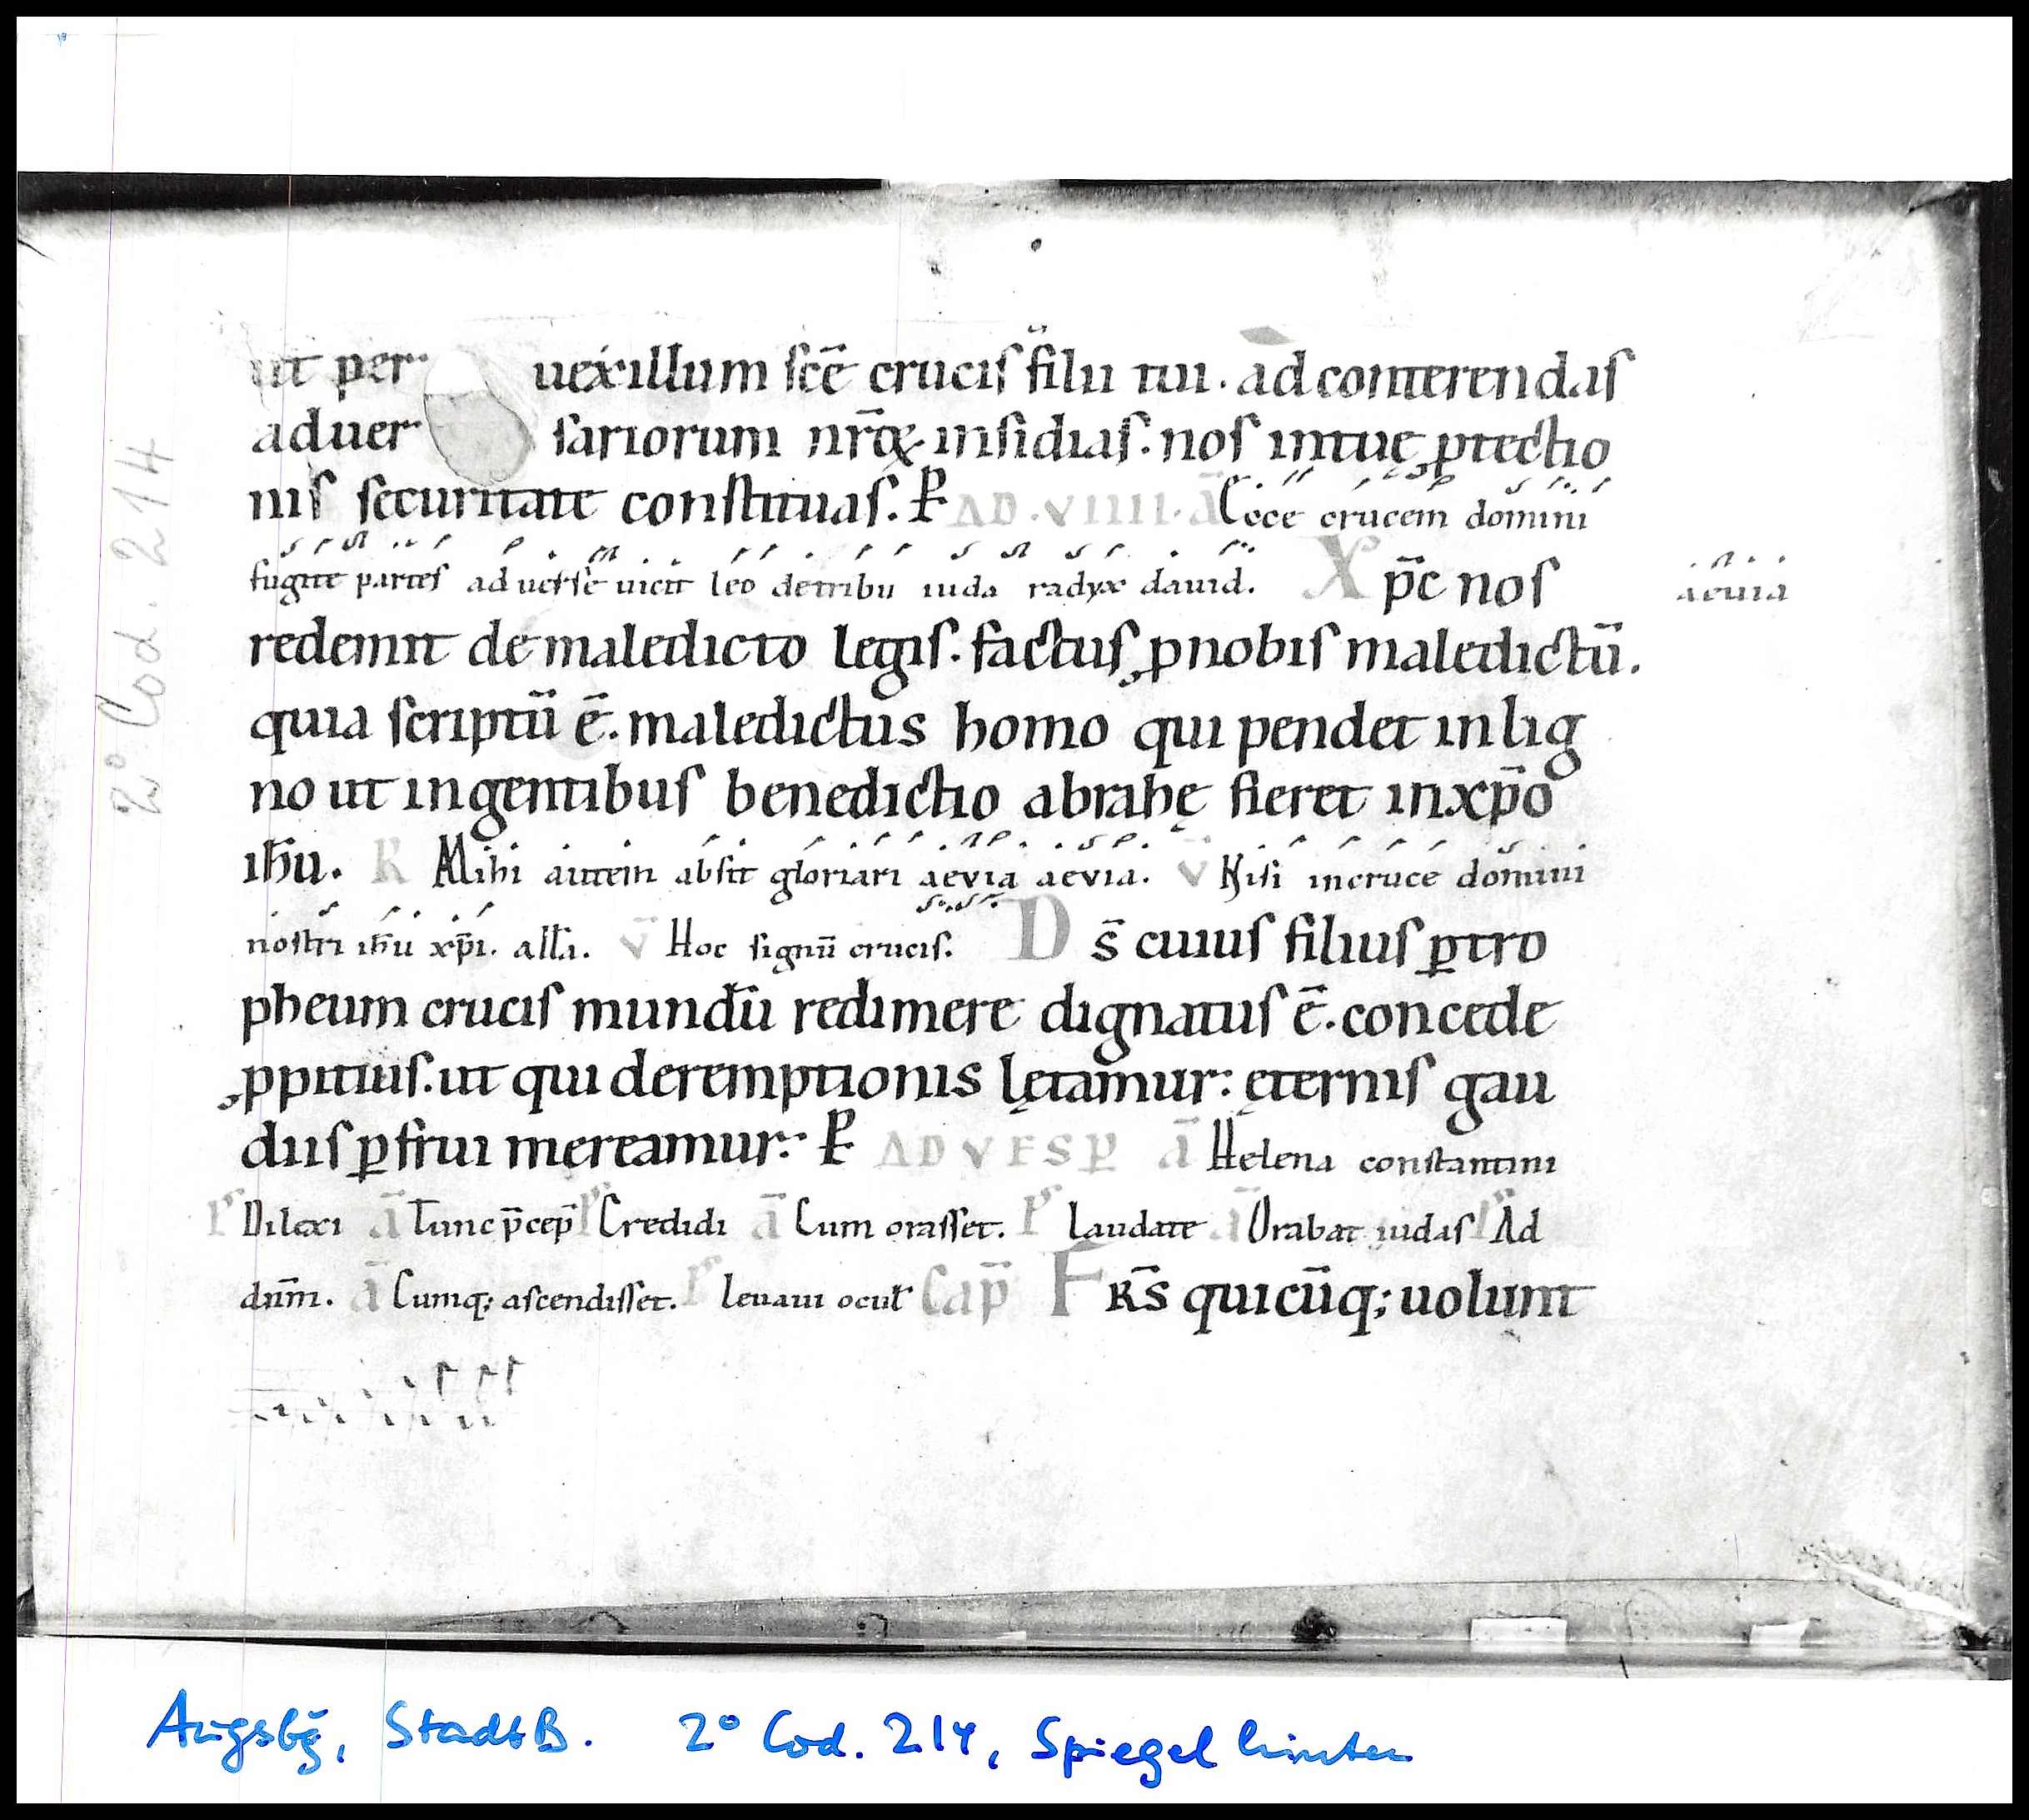 ut per uexillum scē crucis filii tui. ad conterendas
aduersariorum nr̄oꝝ insidias. nos intuę ꝓtectio
nis securitate constituas. P AD .VIIII. ā Ecce crucem domini
fugite partes aduersę uicit leo detribu iuda radyx dauid. Xp̄c nos
aeuia
redemit de maledicto legis. factus ꝓnobis maledictū.
quia scriptū ē. maledictus homo qui pendet inlig
no ut ingentibus benedictio abrahę fieret inxp̄o
ih̄u. R Mihi autem absit gloriari aevia aevia. v̄ Nisi incruce domini
nostri ih̄u xp̄i. all̄a. v̄ Hoc signū crucis. Ds̄ cuius filius ꝑtro
pheum crucis mundū redimere dignatus ē. concede
ꝓpitius. ut qui deremptionis lętamur: ęternis gau
diis ꝑfrui mereamur: P AD VESP̄ ā Helena constantini
Ps Dilexi ā Tunc p̄cep̄ Ps Credidi ā Cum orasset. Ps Laudate ā Orabat iudas Ps Ad
dn̄m. ā Cumq; ascendisset. Ps Leuaui ocul̄ Cap̄ FRS̄ quicūq; uolunt
2° Cod. 214
Augsbg, StadtB. 2° Cod. 214, Spiegel hinten